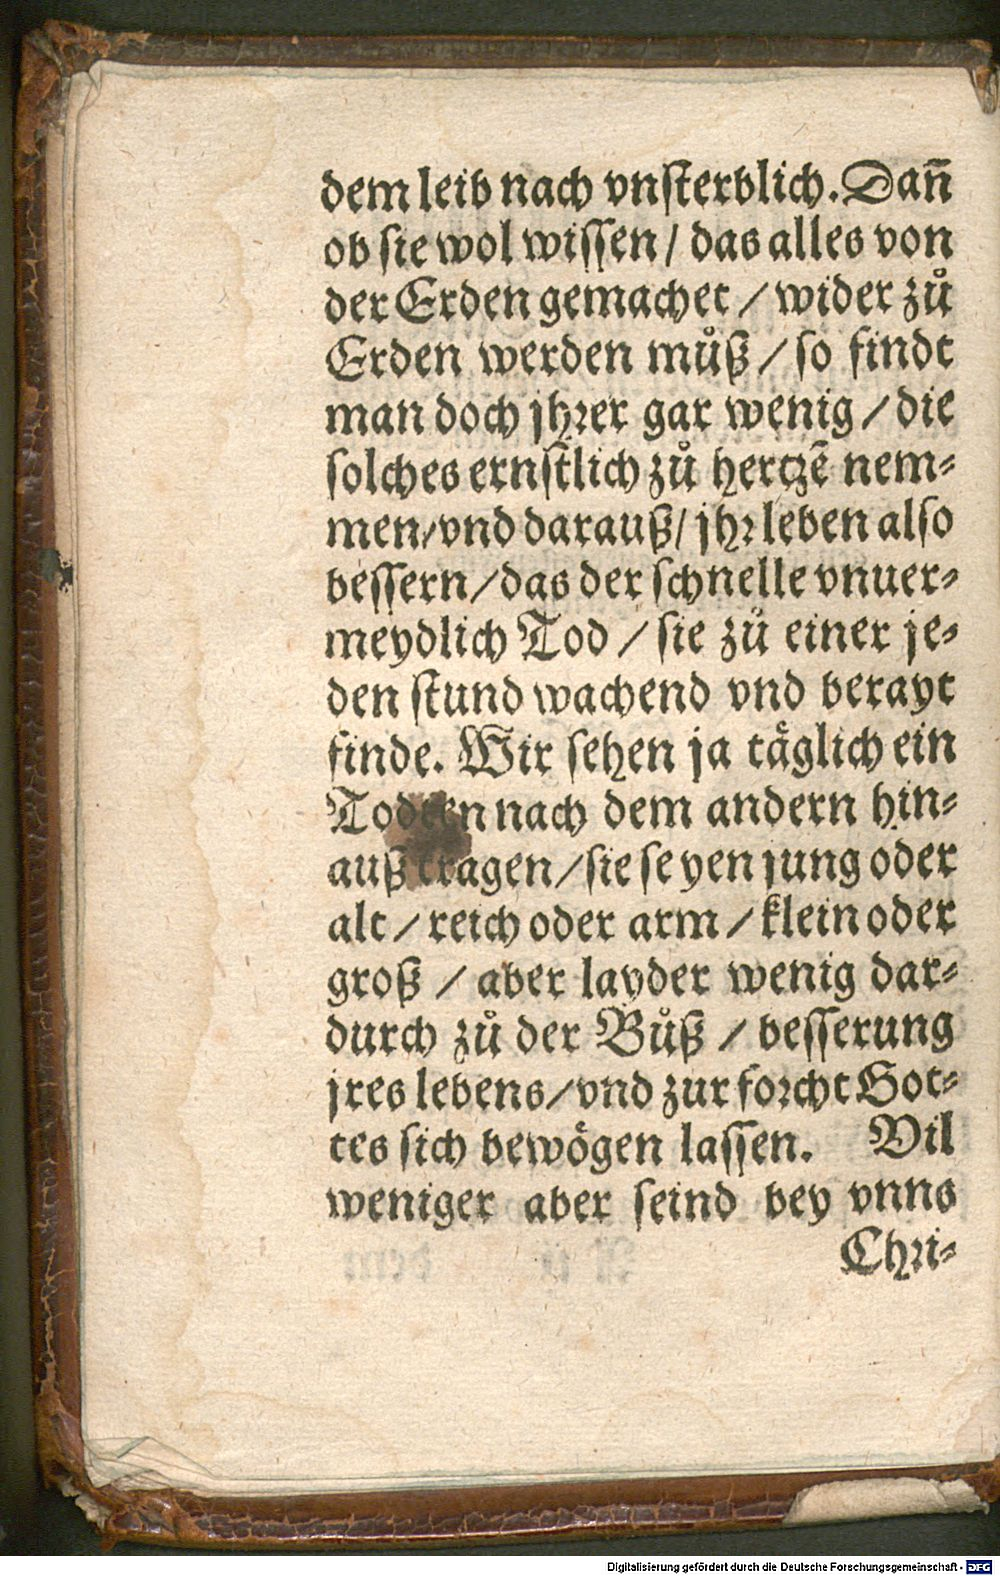 dem leib nach vnsterblich. Dañ
ob sie wol wissen / das alles von
der Erden gemachet / wider zů
Erden werden můß / so findt
man doch jhrer gar wenig / die
solches ernstlich zů hertzẽ nem⸗
men / vnd darauß / jhr leben also
bessern / das der schnelle vnuer⸗
meydlich Tod / sie zů einer je⸗
den stund wachend vnd berayt
finde. Wir sehen ja täglich ein
Todten nach dem andern hin⸗
auß tragen / sie seyen jung oder
alt / reich oder arm / klein oder
groß / aber layder wenig dar⸗
durch zů der Bůß / besserung
jres lebens / vnd zur forcht Got⸗
tes sich bewögen lassen. Vil
weniger aber seind bey vnns
Chri⸗
Digitalisierung gefördert durch die Deutsche Forschungsgemeinschaft - DFG